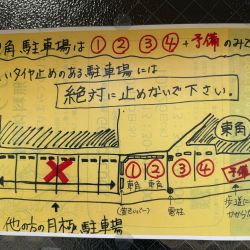 角 駐車場は ① ② ③ ④ + 予備 のみで
いタイヤ止めのある駐車場には
絶対に止めないで下さい。
東角
① ② ③ ④ 予備
東角 東角
(黄色いバー)
電柱
歩道に
他の方の月極駐車場